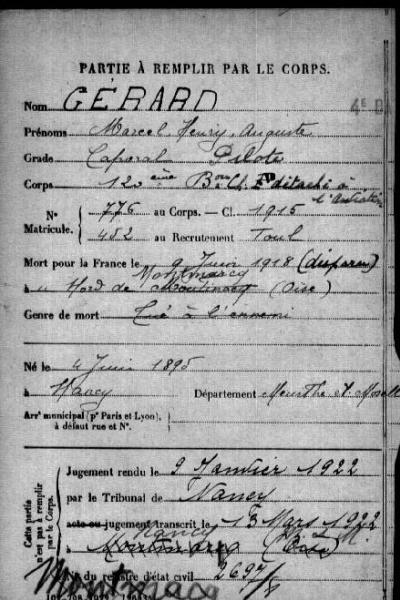 PARTIE À REMPLIR PAR LE CORPS.
Nom GÉRARD
Prénoms Marcel Henry Auguste
Grade Caporal Pilote
Corps 120ème Bon Ch. à P détaché à
l'aviation
N° Matricule. 776 au Corps. — Cl. 1915
452 au Recrutement Toul
Mort pour la France le 9 Juin 1918 (disparu)
Montmarcy
à au Nord de (Oise)
Genre de mort Tué à l'ennemi
Né le 4 Juin 1895
à Nancy Département Meurthe et Moselle
Arrt municipal (pr Paris et Lyon),
à défaut rue et N°.
Cette partie n'est pas à remplir par le Corps.
Jugement rendu le 9 Janvier 1922
par le Tribunal de Nancy
acte ou jugement transcrit le 13 Mars 1922
Nancy
à (Oise)
N° du registre d'état civil 2697/8